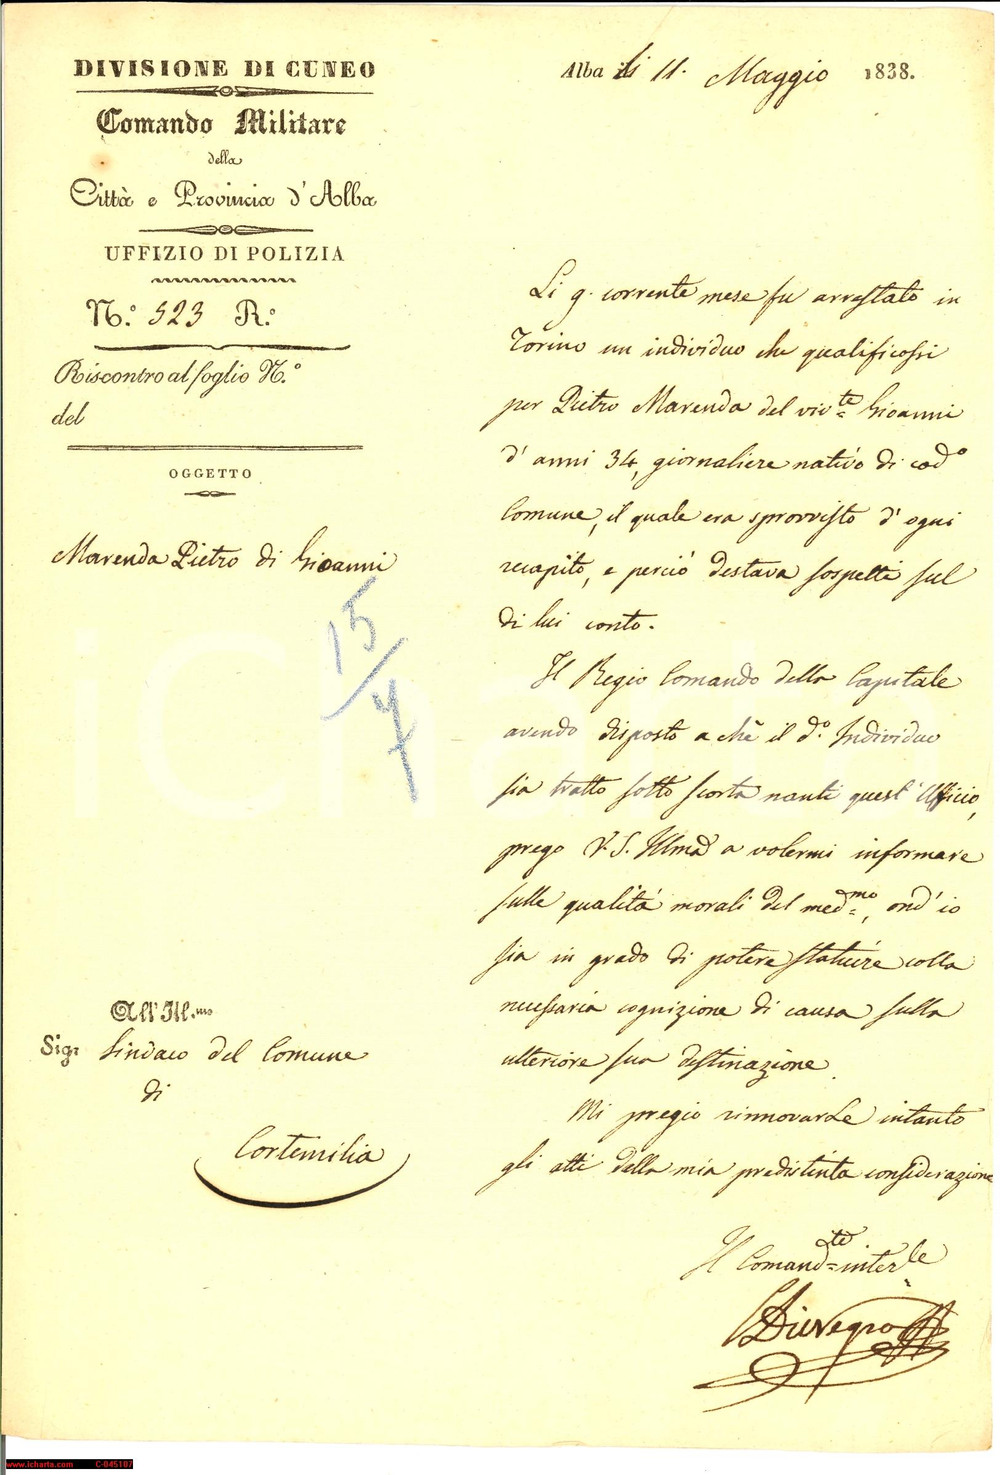 DIVISIONE DI CUNEO
Comando Militare
della
Città e Provincia d'Alba
UFFIZIO DI POLIZIA
N.º 523 R.º
Riscontro al foglio N.º
del
OGGETTO
Marenda Pietro di Gioanni
15/7
All'Ill.mo
Sigr Sindaco del Comune
di
Cortemilia
Alba li 11. Maggio 1838.
Li 9. corrente mese fu arrestato in
Torino un individuo che qualificossi
per Pietro Marenda del viv.te Gioanni
d'anni 34, giornaliere nativo di cod.º
Comune, il quale era sprovvisto d'ogni
recapito, e perciò destava sospetti sul
di lui conto.
Il Regio Comando della Capitale
avendo disposto a chè il d.º Individuo
sia tratto sotto scorta nanti quest'Ufficio,
prego V. S. Illma a volermi informare
sulle qualità morali del med.mo, ond'io
sia in grado di potere statuire colla
necessaria cognizione di causa sulla
ulteriore sua destinazione.
Mi pregio rinnovarLe intanto
gli atti della mia predistinta considerazione
Il Comand.te inter.le
www.icharta.com C-045107